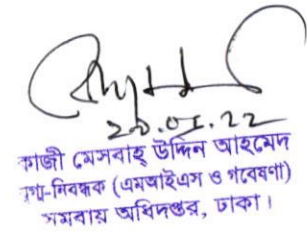 20.01.22
কাজী মেসবাহ্ উদ্দিন আহমেদ
যুগ্ম-নিবন্ধক (এমআইএস ও গবেষণা)
সমবায় অধিদপ্তর, ঢাকা।